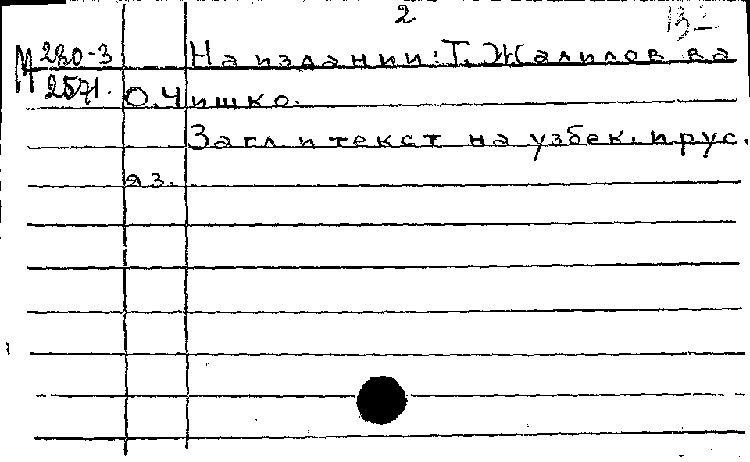 2
М 280-3
2571.
На издании: Т. Жалилов ва
О. Чишко.
Загл и текст на узбек. и рус.
яз.